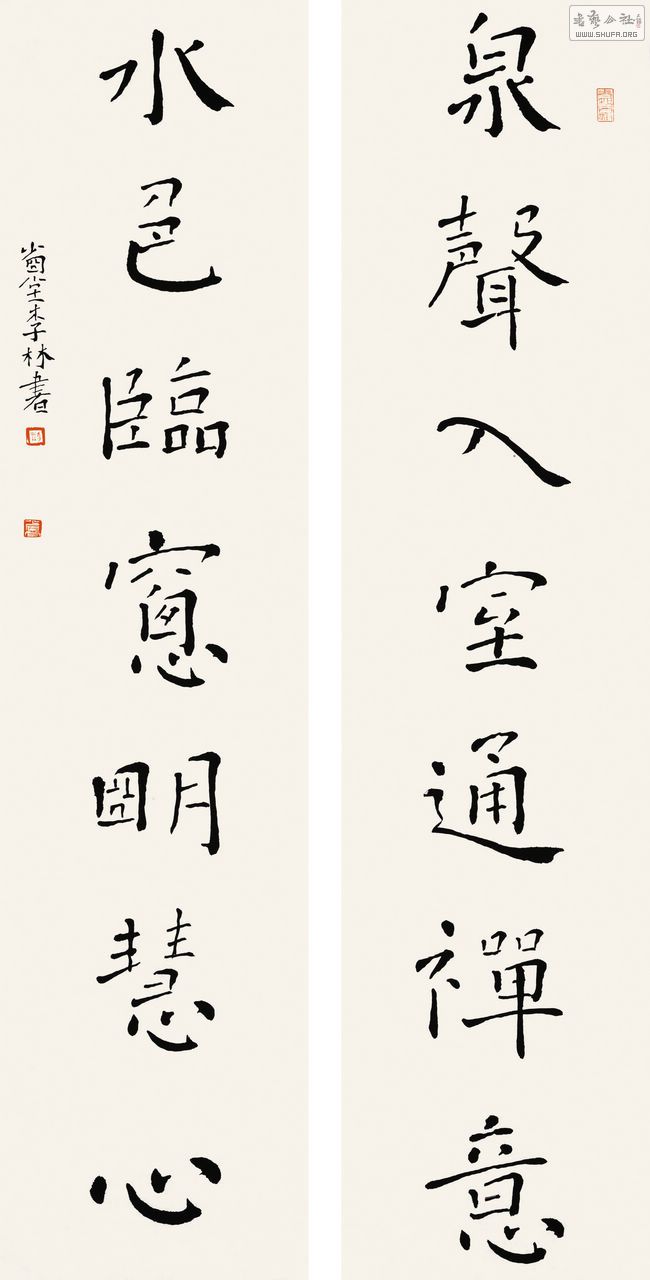 泉聲入室通禪意
水色臨窻朙慧心
李林書
書藝公社
WWW.SHUFA.ORG